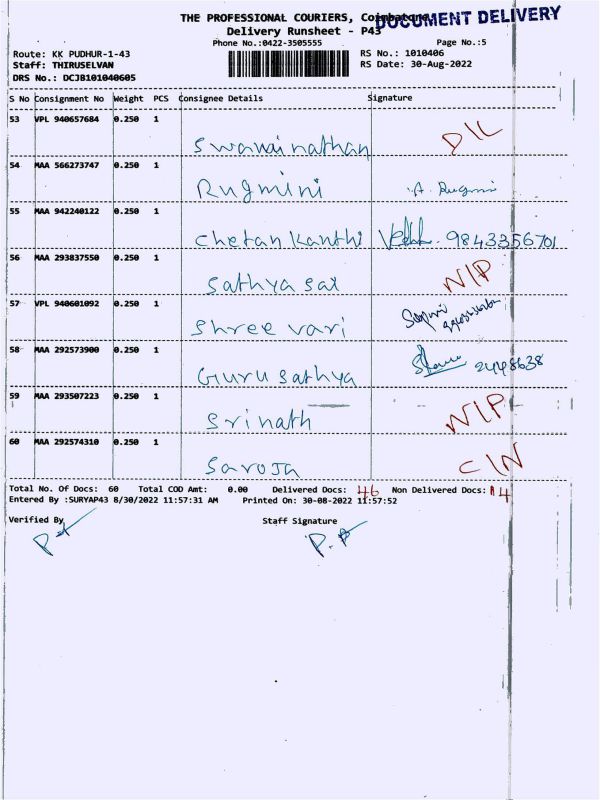 THE PROFESSIONAL COURIERS, Coimbatore
DOCUMENT DELIVERY
Delivery Runsheet - P43
Phone No.:0422-3505555 Page No.:5
Route: KK PUDHUR-1-43 RS No.: 1010406
Staff: THIRUSELVAN RS Date: 30-Aug-2022
DRS No.: DCJB101040605
S No Consignment No Weight PCS Consignee Details Signature
53 VPL 940657684 0.250 1
Swaminathan D/L
54 MAA 566273747 0.250 1
Rugmini A. Rugmini
55 MAA 942240122 0.250 1
Chetan Kanthi 9843356701
56 MAA 293837550 0.250 1
Sathya sai N/P
57 VPL 940601092 0.250 1
Shree vari
58 MAA 292573900 0.250 1
Guru sathya 2448638
59 MAA 293507223 0.250 1
Srinath N/P
60 MAA 292574310 0.250 1
Saroja C/N
Total No. Of Docs: 60 Total COD Amt: 0.00 Delivered Docs: 46 Non Delivered Docs: 14
Entered By :SURYAP43 8/30/2022 11:57:31 AM Printed On: 30-08-2022 11:57:52
Verified By Staff Signature